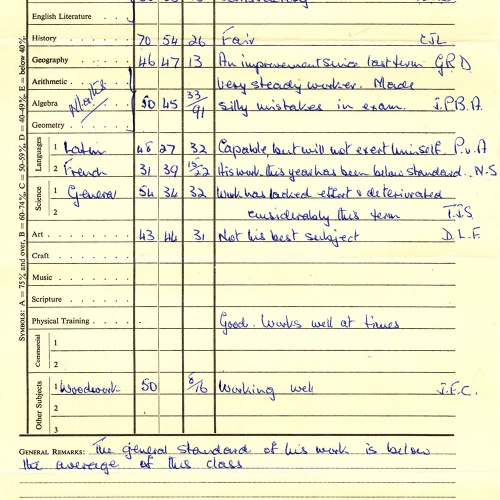 English Literature
History . . . . . 70 54 26 Fair C.J.L.
Geography . . . . 46 47 13 An improvement since last term G.R.D
Arithmetic . . . Very steady worker. Made
Algebra . . . Maths 50 45 33/91 silly mistakes in exam. J.P.B.A.
Geometry . . .
Languages
1 Latin 48 27 32 Capable, but will not exert himself. P.v.A
2 French 31 39 15/22 His work this year has been below standard. N.S
Science
1 General 54 34 32 Work has lacked effort & deteriorated
2 considerably this term T.J.S
Art . . . . . 43 44 31 Not his best subject D.L.F.
Craft . . . .
Music . . . .
Scripture . . . .
Physical Training . . . . . Good. Works well at times
Commercial
1
2
Other Subjects
1 Woodwork 50 8/16 Working well J.F.C.
2
3
SYMBOLS: A = 75% and over, B = 60-74%, C = 50-59%, D = 40-49%, E = below 40%.
GENERAL REMARKS: The general standard of his work is below
the average of this class